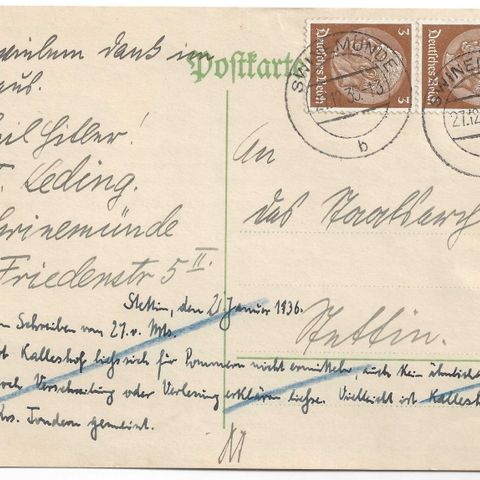 vielem Dank im
aus.
eil Hitler!
Leding.
winemünde
Friedenstr 5 II.
Postkarte
Deutsches Reich 3
3 Deutsches Reich
SWINEMÜNDE
b
SWINE
27.12
An
das Staatsarch
Stettin.
Stettin, den 2. Januar 1936.
Schreiben vom 27. v. Mts.
Kalleshof liesse sich für Pommern nicht ermitteln, auch kein ähnlich
Verschreibung oder Verlesung erklären liesse. Vielleicht ist Kallesh
Krs. Tondern gemeint.